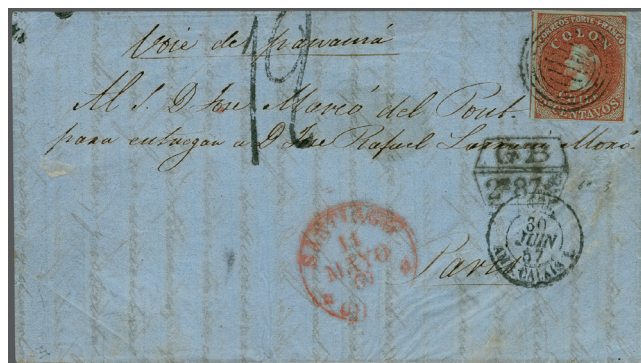 Voie de panamá
12
CORREOS PORTE FRANCO
COLON
CENTAVOS
Al S. D. Jose Maria del Pont
para entregar a D Jose Rafael Larrain Moxo
GB
2F 87
SANTIAGO
11
MAYO
30
JUIN
57
AMB. CALAIS
Paris